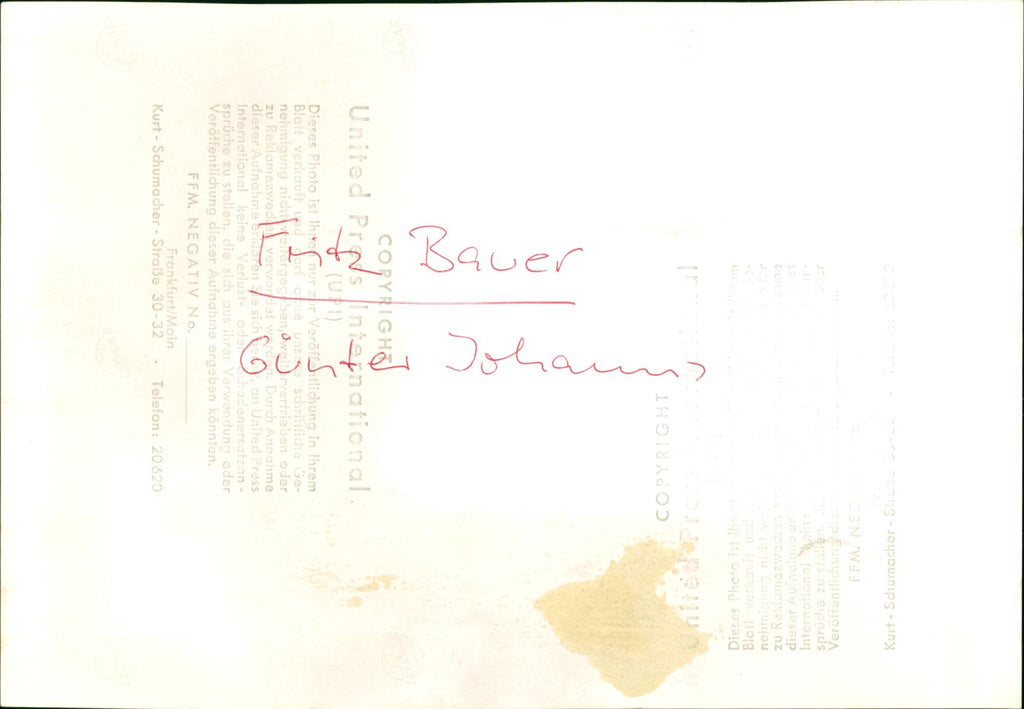 Fritz Bauer
Günter Johanns
COPYRIGHT
United Press International.
(UPI)
Dieses Photo ist Ihnen nur zur Veröffentlichung in Ihrem
Blatt verkauft und darf ohne unsere schriftliche Ge-
nehmigung nicht weitergegeben, weitervertrieben oder
zu Reklamezwecken verwendet werden. Durch Annahme
dieser Aufnahme erklären Sie sich bereit, an United Press
International keine Verlust- oder Schadenersatzan-
sprüche zu stellen, die sich aus ihrer Verwendung oder
Veröffentlichung dieser Aufnahme ergeben könnten.
FFM. NEGATIV No.
Frankfurt/Main
Kurt-Schumacher-Straße 30-32 · Telefon: 20620
COPYRIGHT
United Press
Dieses Photo ist Ihnen
Blatt verkauft und
nehmigung nicht
zu Reklamezwecken
dieser Aufnahme
International keine
sprüche zu stellen,
Veröffentlichung
FFM.
Kurt-Schumacher-Straße